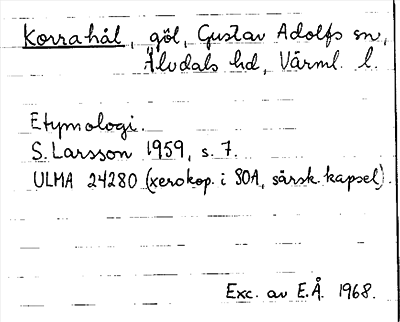 Korrahål, göl, Gustav Adolfs sn,
Älvdals hd, Värml. l.
Etymologi.
S. Larsson 1959, s. 7.
ULMA 24280 (xerokop. i SOA, särsk. kapsel).
Exc. av E.Å. 1968.